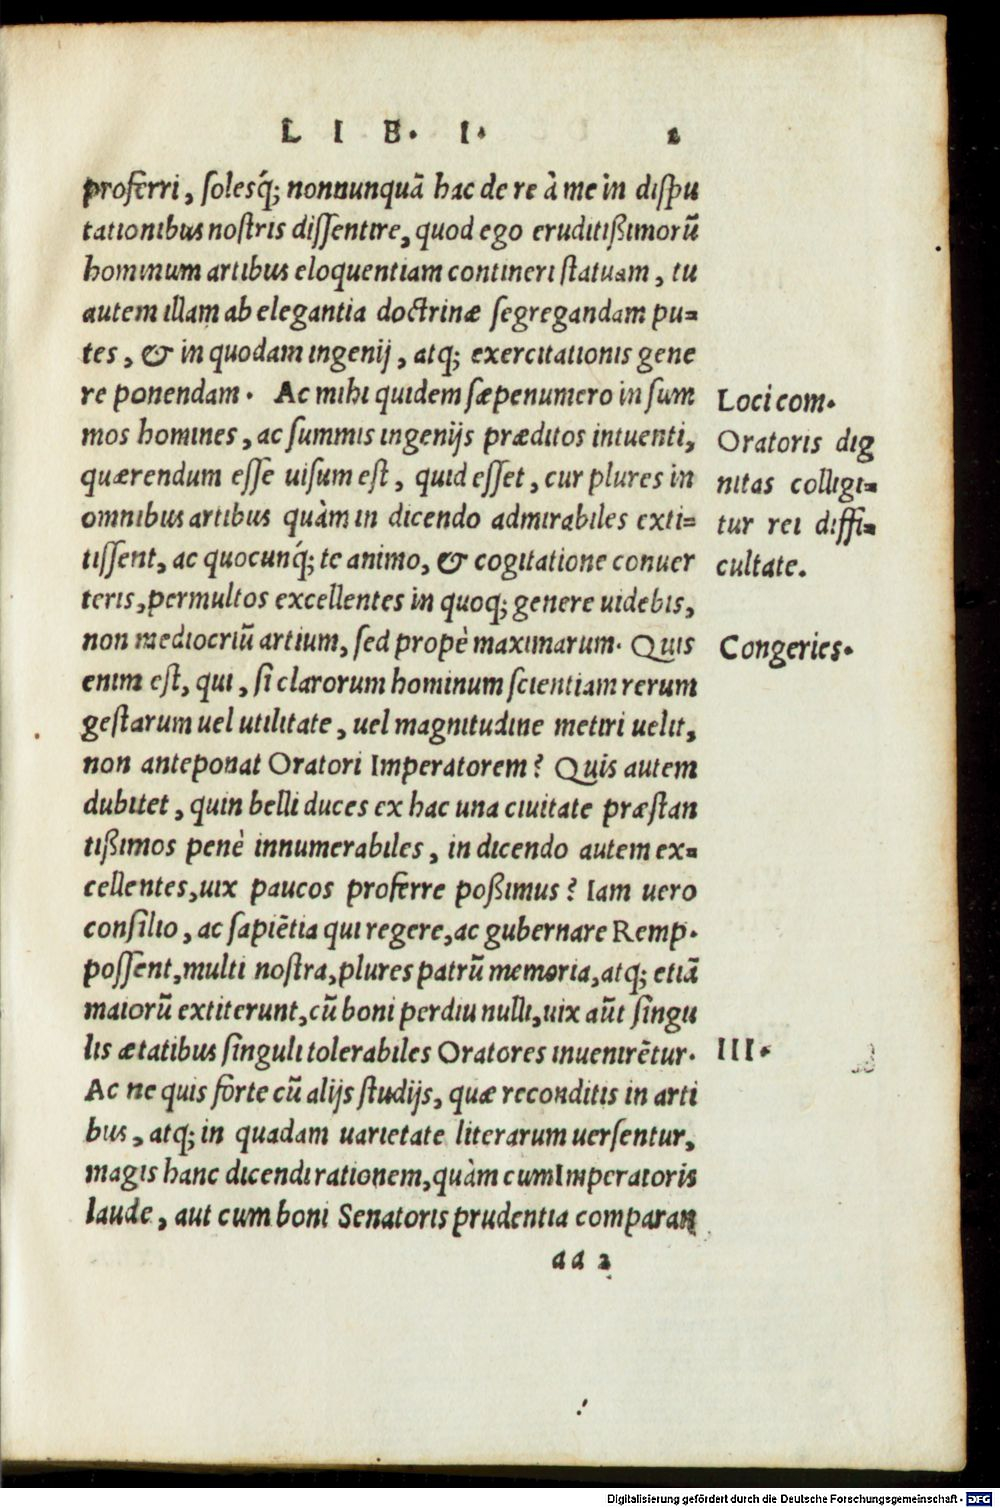 LIB. I. 2
proferri, solesq́; nonnunquā hac de re à me in dispu
tationibus nostris dissentire, quod ego eruditißimorū
hominum artibus eloquentiam contineri statuam, tu
autem illam ab elegantia doctrinæ segregandam pu=
tes, & in quodam ingenij, atq; exercitationis gene
re ponendam. Ac mihi quidem sæpenumero in sum
mos homines, ac summis ingenijs præditos intuenti,
quærendum esse uisum est, quid esset, cur plures in
omnibus artibus quàm in dicendo admirabiles exti=
tissent, ac quocunq́; te animo, & cogitatione conuer
teris, permultos excellentes in quoq; genere uidebis,
non mediocriū artium, sed propè maximarum. Quis
enim est, qui, si clarorum hominum scientiam rerum
gestarum uel utilitate, uel magnitudine metiri uelit,
non anteponat Oratori Imperatorem? Quis autem
dubitet, quin belli duces ex hac una ciuitate præstan
tißimos penè innumerabiles, in dicendo autem ex=
cellentes, uix paucos proferre poßimus? Iam uero
consilio, ac sapiētia qui regere, ac gubernare Remp.
possent, multi nostra, plures patrū memoria, atq; etiā
maiorū extiterunt, cū boni perdiu nulli, uix aūt singu
lis ætatibus singuli tolerabiles Oratores inuenirētur.
Ac ne quis forte cū alijs studijs, quæ reconditis in arti
bus, atq; in quadam uarietate literarum uersentur,
magis hanc dicendi rationem, quàm cum Imperatoris
laude, aut cum boni Senatoris prudentia comparan
aa 2
Loci com.
Oratoris dig
nitas colligi=
tur rei diffi=
cultate.
Congeries.
III.
Digitalisierung gefördert durch die Deutsche Forschungsgemeinschaft - DFG